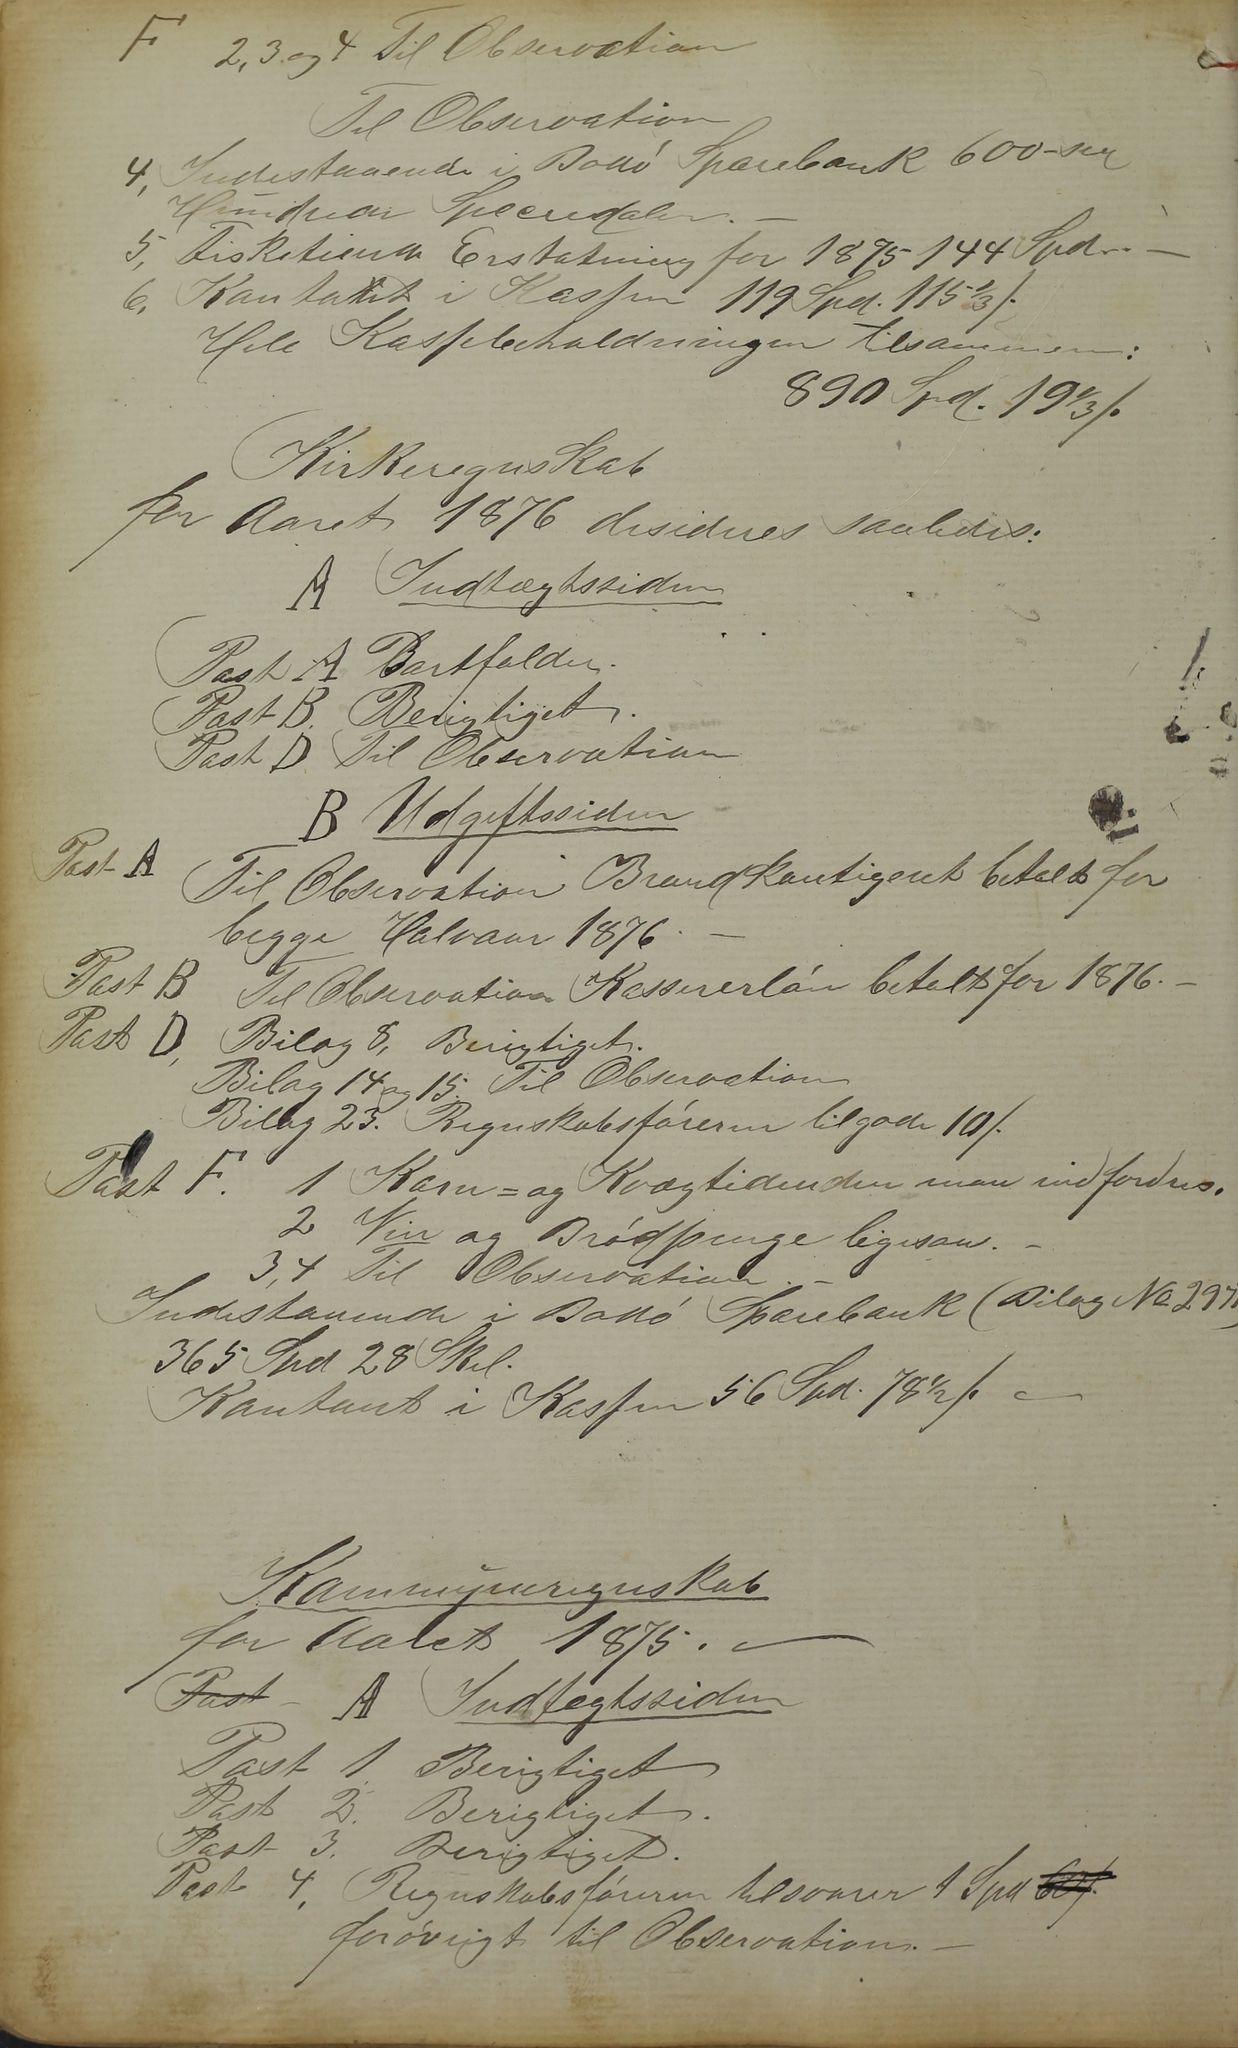 F 2, 3. og 4 Til Observation
Til Observation
4, Indestaaende i Bodó Sparebank 600 - sex
Hundrede Speciedaler. -
5, Fisketiende Erstatning for 1875 144 Spd. -
6, Kontant i Kassen 119 Spd. 115 1/3 /.
Hele Kassebeholdningen tilsammen:
890 Spd. 19 1/3 /.
Kirkeregnskab
for Aaret 1876 desideres saaledes:
A Indtægtssiden
Post A Bortfalder.
Post B. Berigtiget.
Post D Til Observation
B Udgiftssiden
Post A Til Observation Brandkontigent betalt for
begge Halvaar 1876. -
Post B Til Observation Kassererlón betalt for 1876. -
Post D, Bilag 8, Berigtiget.
Bilag 14 og 15. Til Observation
Bilag 23. Regnskabsfóreren tilgode 10 /.
Post F. 1 Korn= og Kvægtidenden maa indfordres.
2 Vin og Bródpenge ligesaa. -
3, 4 Til Observation. -
Indestaaende i Bodó Sparebank (Bilag No 29
365 Spd 28 Skil.
Kontant i Kassen 56 Spd. 78 1/2 /.
Kommuneregnskab
for Aaret 1875.
Post - A Indtægtssiden
Post 1 Berigtiget
Post 2. Berigtiget.
Post 3. Berigtiget.
Post 4, Regnskabsfóreren tilsvarer 1 Spd
foróvrigt til Observation. -